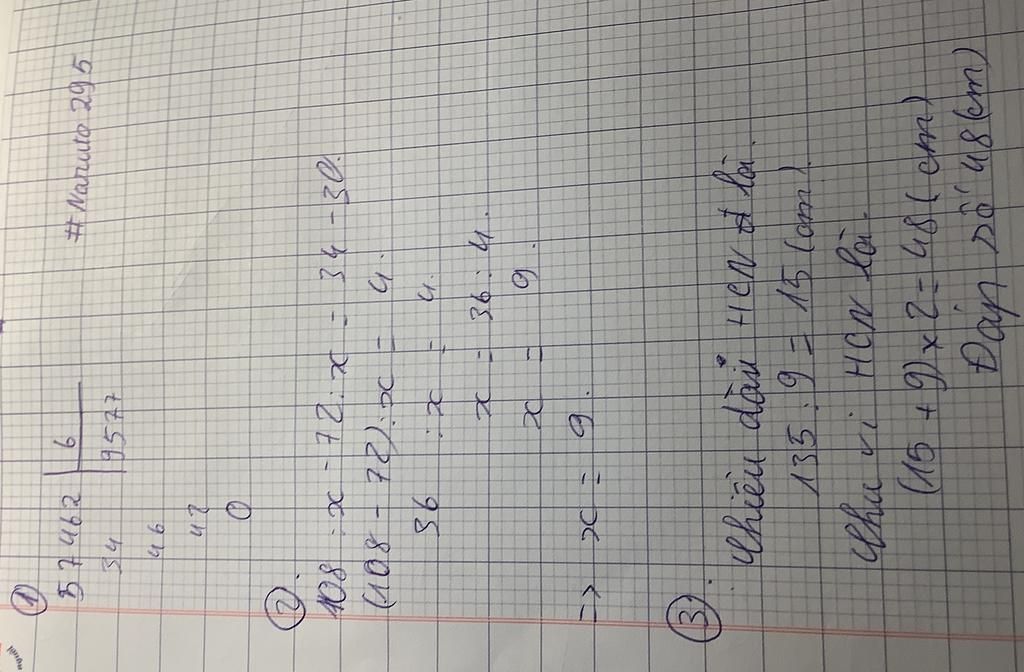 #Naruto295
①
57462 6
34 9577
46
42
0
②
108 : x - 72 : x = 34 - 30.
(108 - 72) : x = 4.
36 : x = 4.
x = 36 : 4.
x = 9.
=> x = 9.
③
Chiều dài HCN là.
135 : 9 = 15 (cm)
Chu vi HCN là.
(15 + 9) x 2 = 48 (cm)
Đáp số 48 (cm)